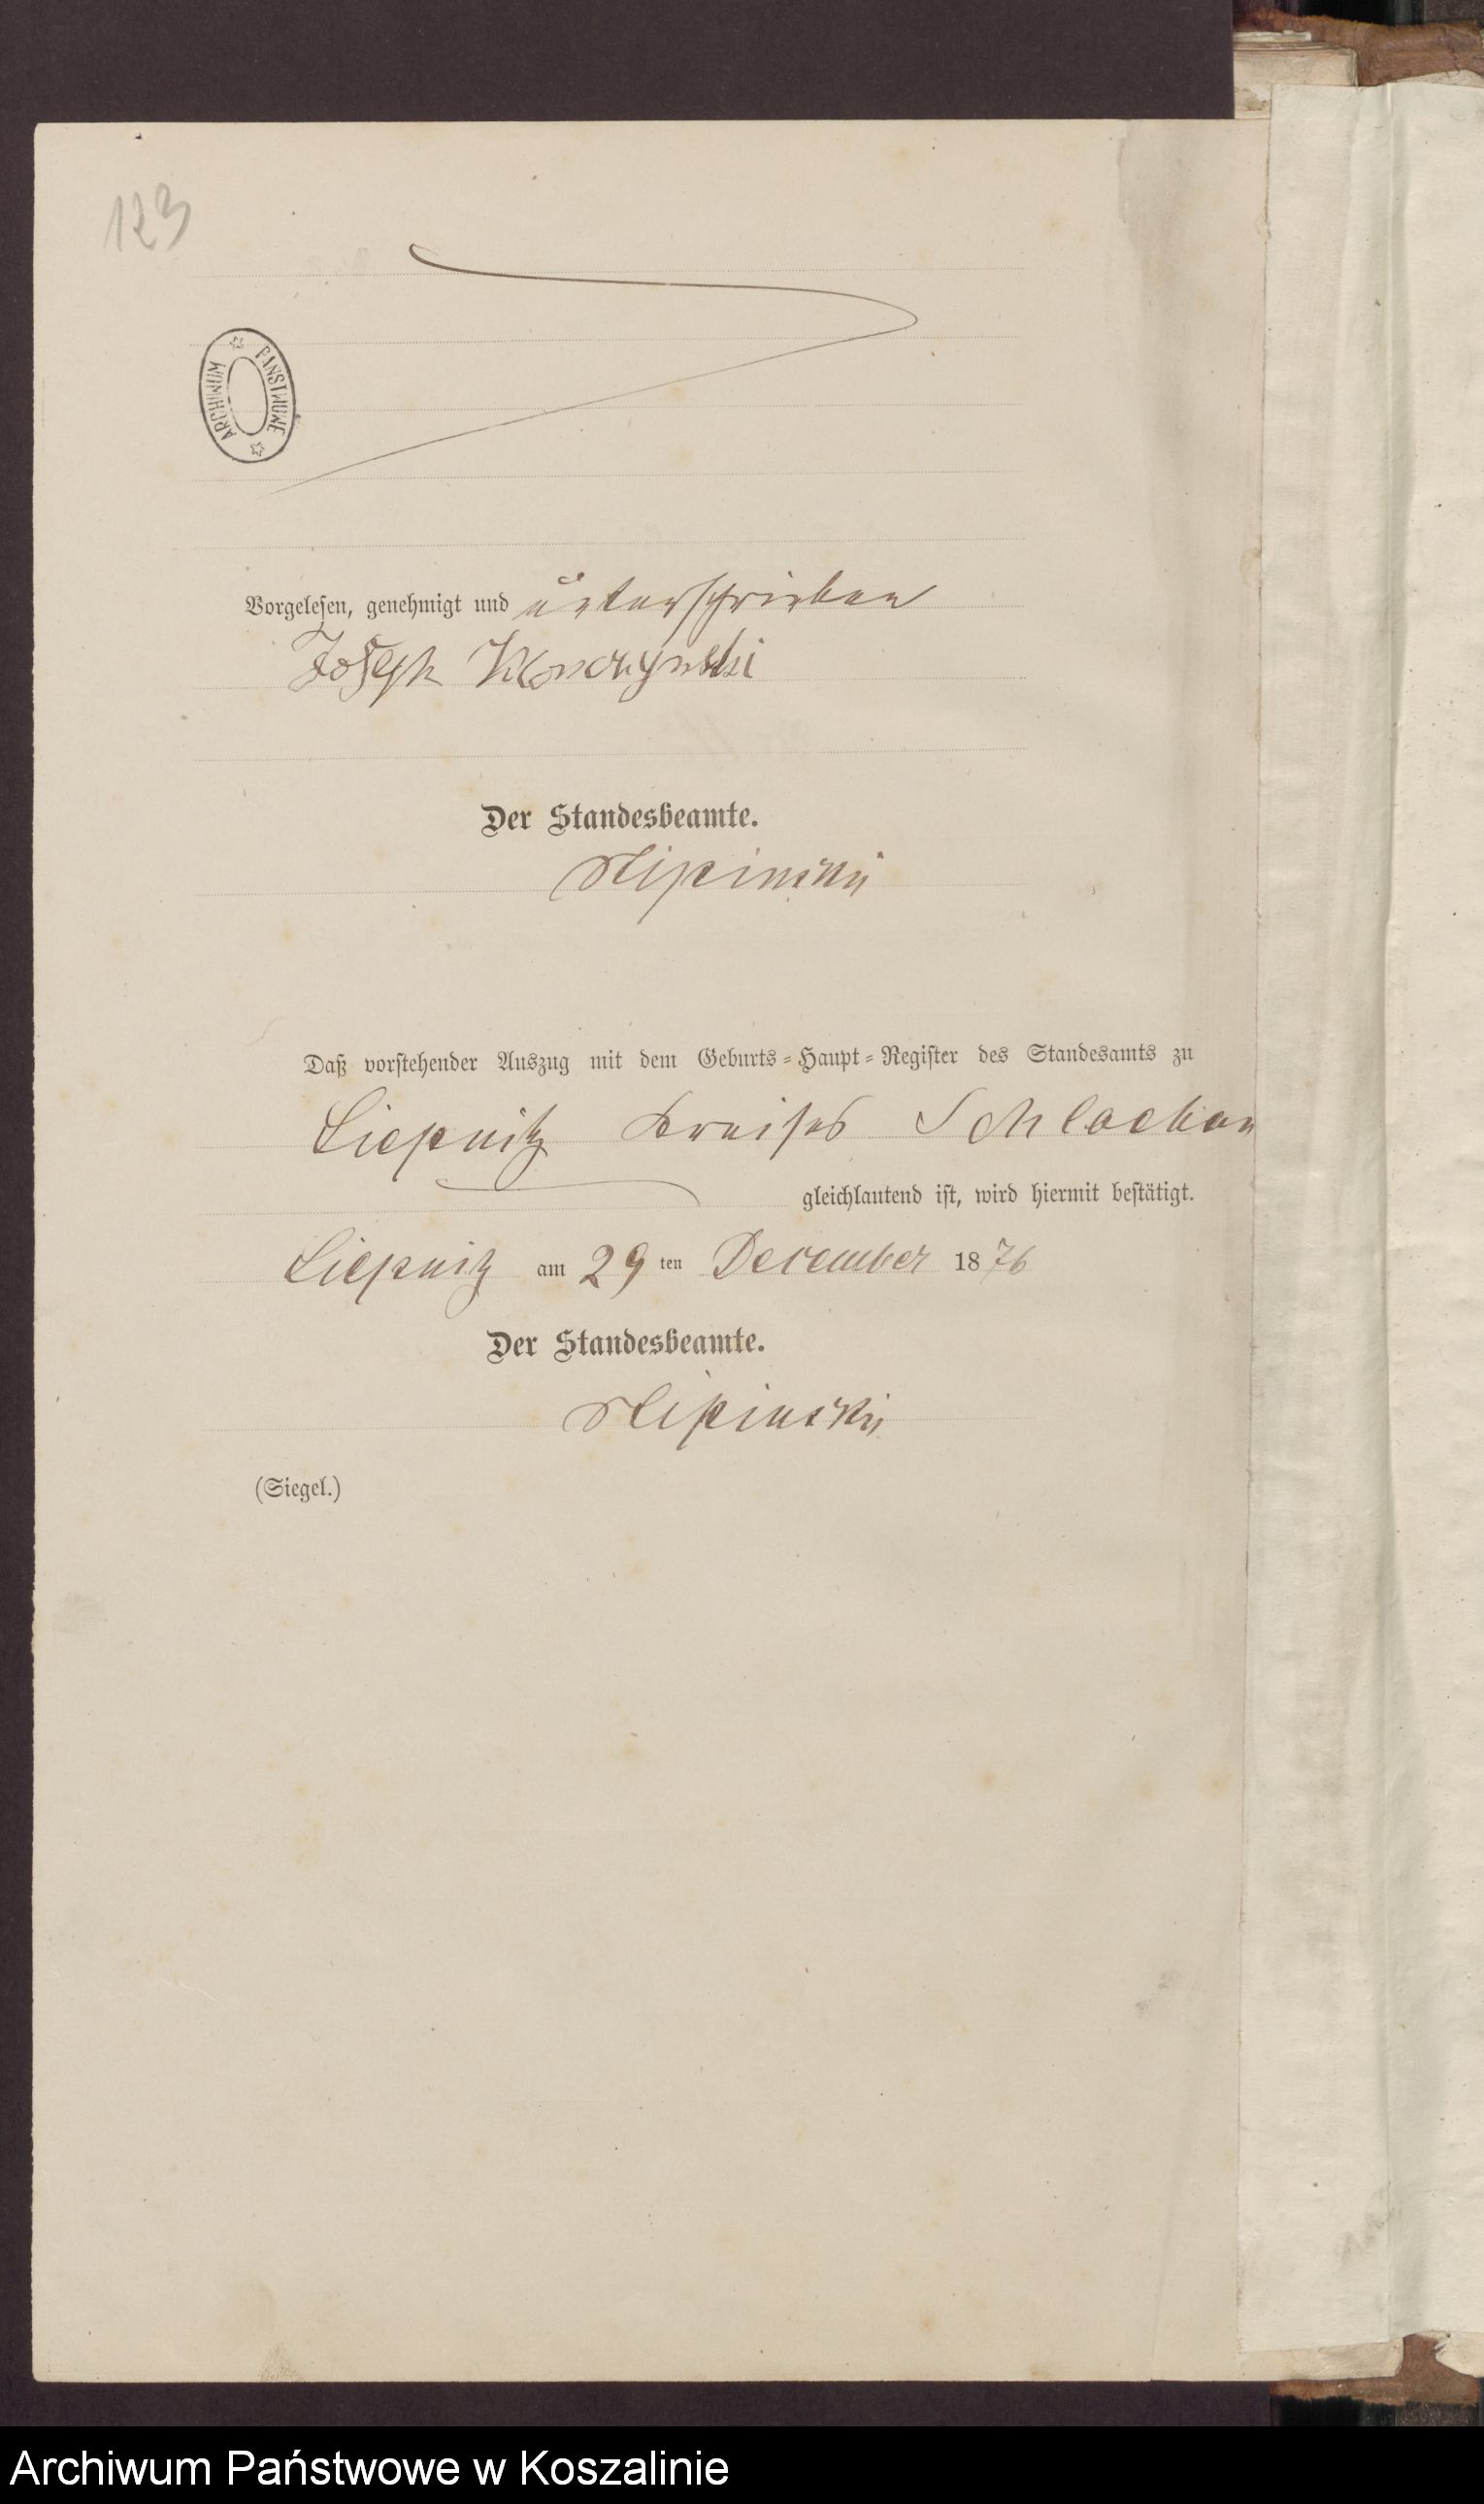 123
ARCHIWUM PAŃSTWOWE
Vorgelesen, genehmigt und unterschrieben
Joseph
Der Standesbeamte.
Daß vorstehender Auszug mit dem Geburts-Haupt-Register des Standesamts zu
Liepnitz Kreises Schlochau
gleichlautend ist, wird hiermit bestätigt.
Liepnitz am 29ten December 1876
Der Standesbeamte.
(Siegel.)
Archiwum Państwowe w Koszalinie